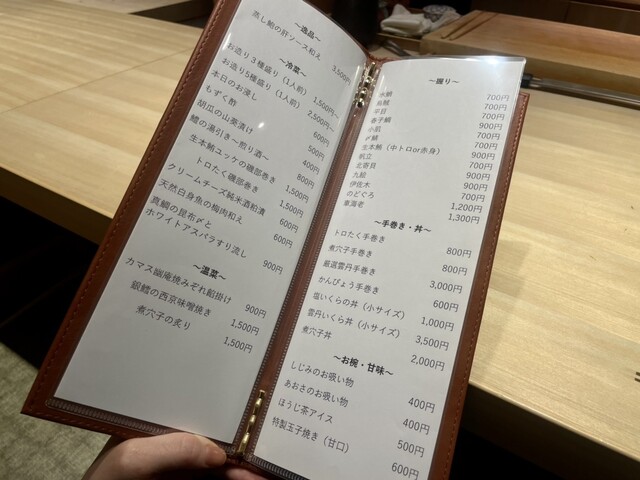 ～逸品～
蒸し鮑の肝ソース和え 3,500円
～冷菜～
お造り３種盛り（1人前） 1,500円～
お造り5種盛り（1人前） 2,500円～
本日のお浸し 600円
もずく酢 500円
胡瓜の山葵漬け 400円
鱧の湯引き～煎り酒～ 800円
生本鮪ユッケの磯部巻き 1,500円
トロたく磯部巻き 1,500円
クリームチーズ純米酒粕漬 600円
天然白身魚の梅肉和え 600円
真鯛の昆布〆と
ホワイトアスパラすり流し 900円
～温菜～
カマス幽庵焼みぞれ餡掛け 900円
銀鱈の西京味噌焼き 1,500円
煮穴子の炙り 1,500円
～握り～
水鮹 700円
烏賊 700円
平目 700円
春子鯛 900円
小肌 700円
〆鯖 700円
生本鮪（中トロor赤身） 900円
帆立 700円
北寄貝 700円
九絵 900円
伊佐木 700円
のどぐろ 1,200円
車海老 1,300円
～手巻き・丼～
トロたく手巻き 800円
煮穴子手巻き 800円
厳選雲丹手巻き 3,000円
かんぴょう手巻き 600円
塩いくらの丼（小サイズ） 1,000円
雲丹いくら丼（小サイズ） 3,500円
煮穴子丼 2,000円
～お椀・甘味～
しじみのお吸い物 400円
あおさのお吸い物 400円
ほうじ茶アイス 500円
特製玉子焼き（甘口） 600円